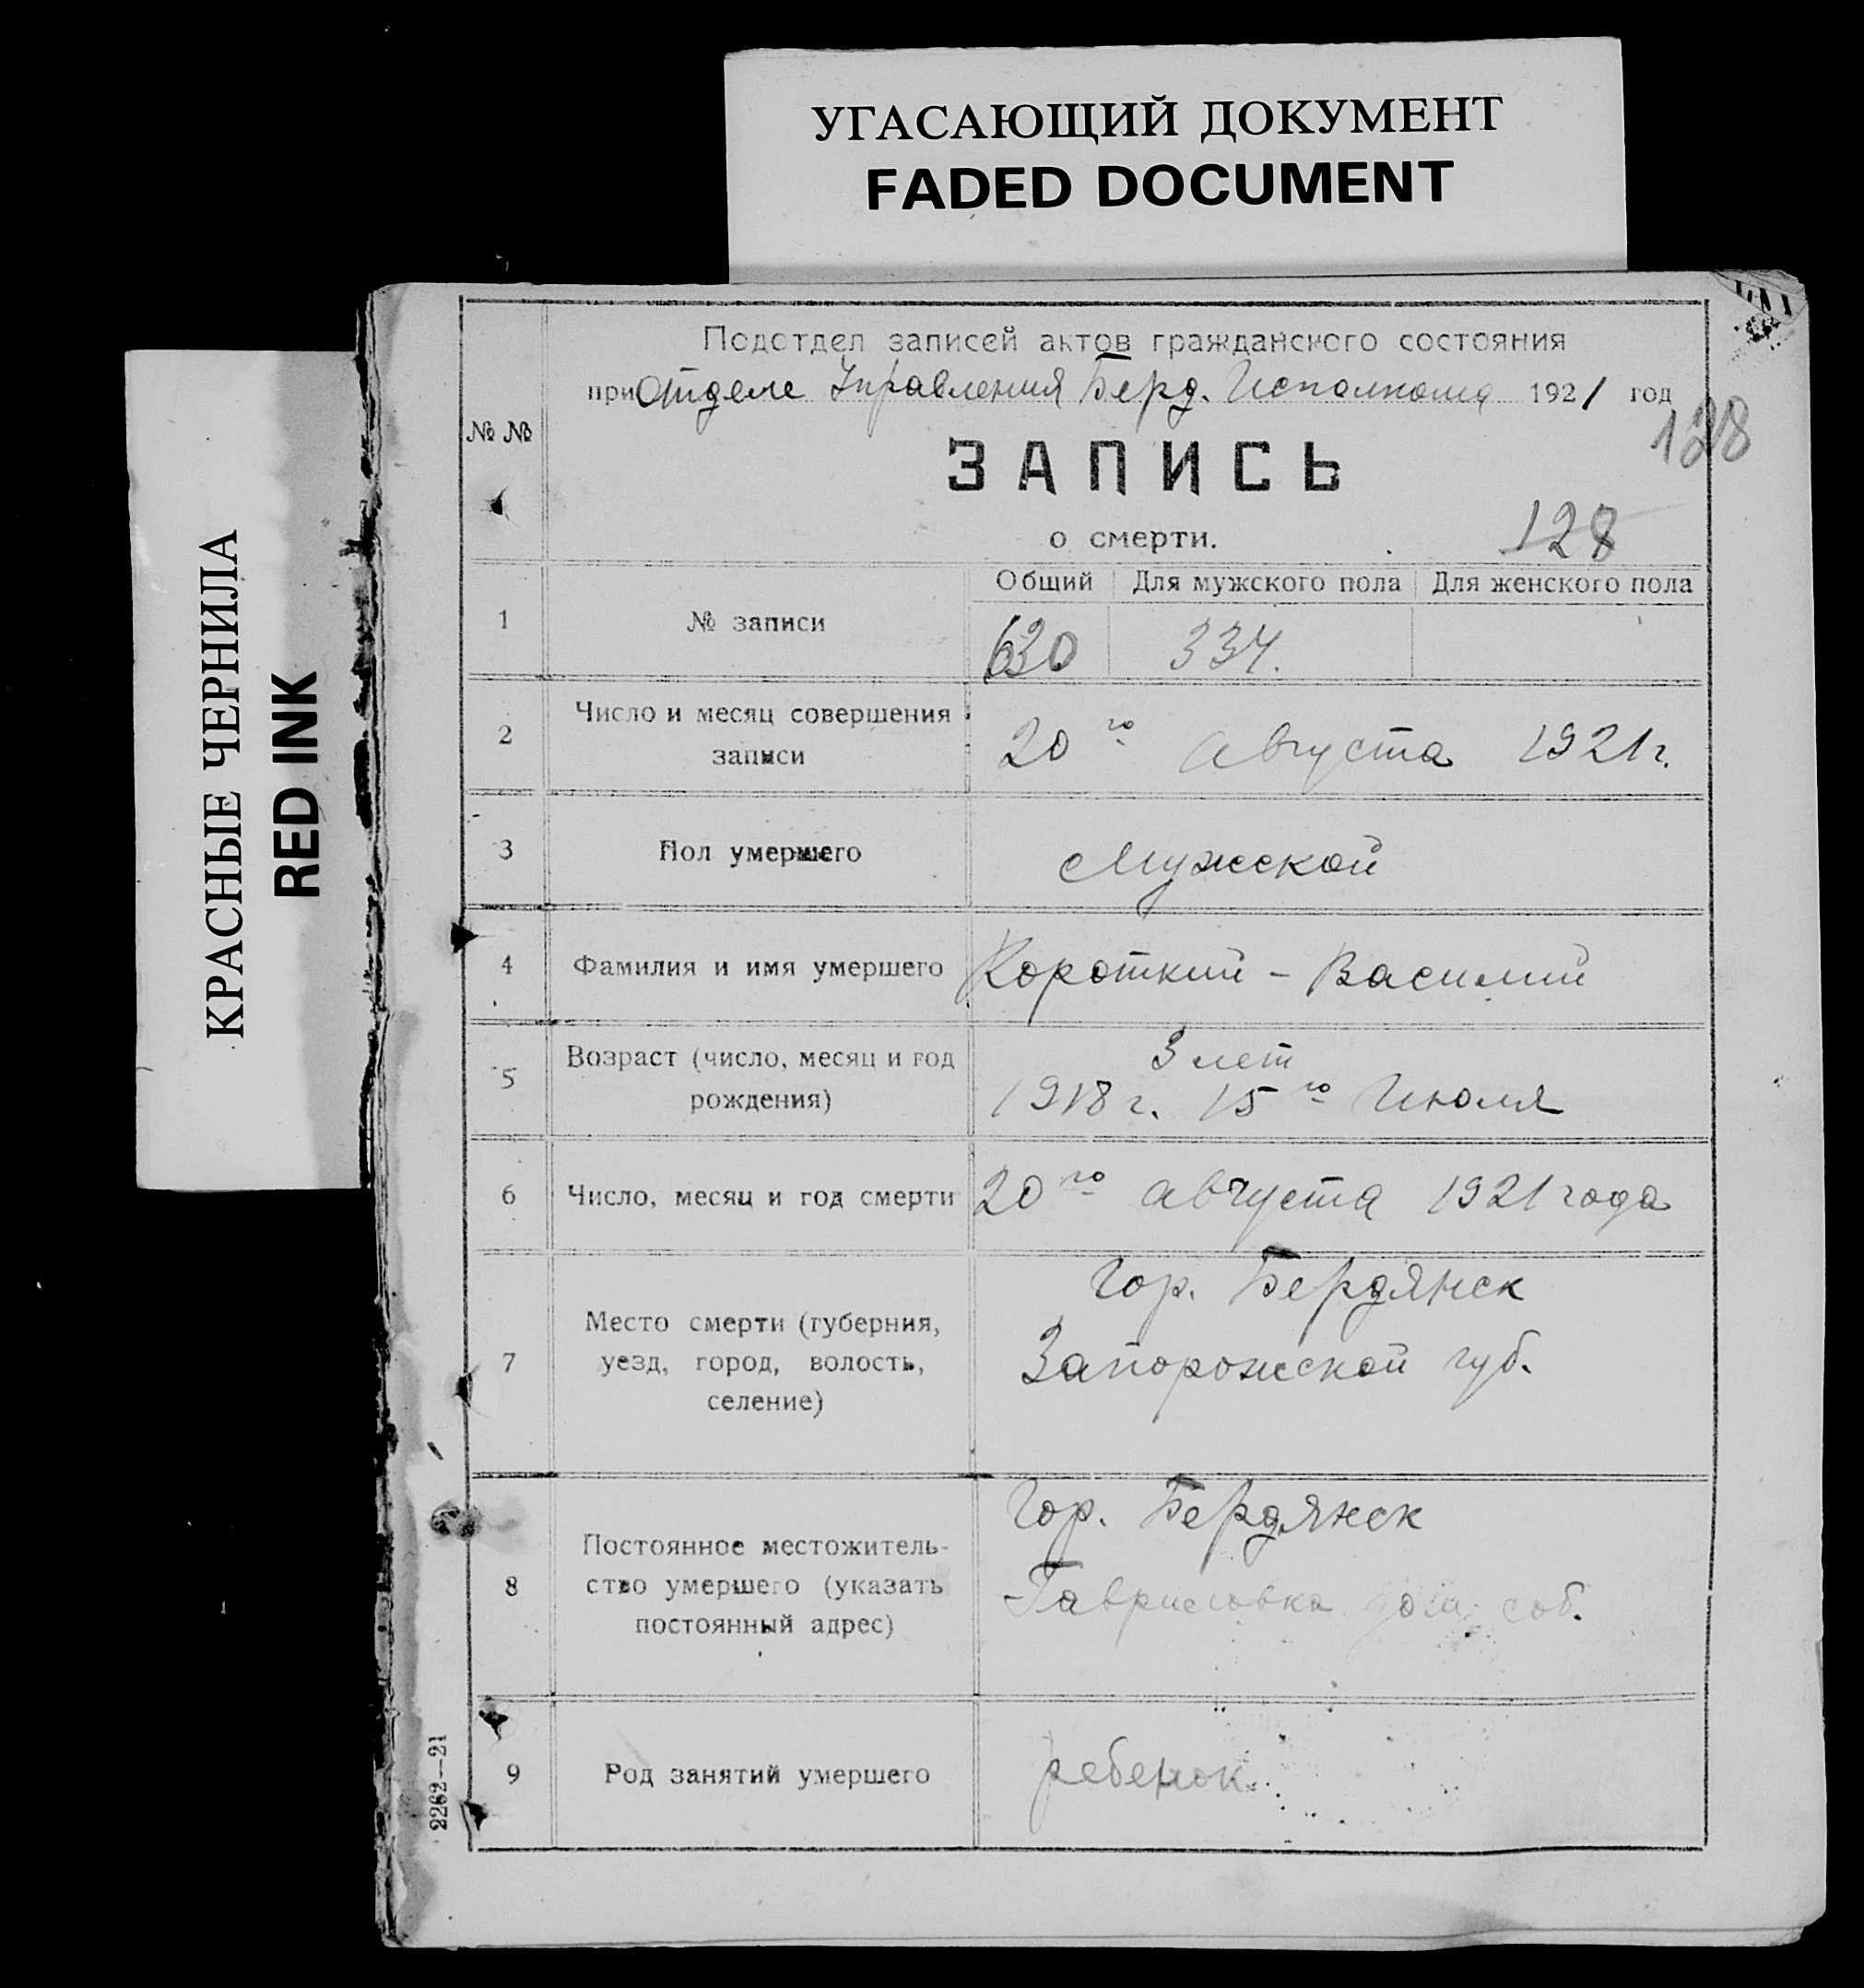 УГАСАЮЩИЙ ДОКУМЕНТ
FADED DOCUMENT
КРАСНЫЕ ЧЕРНИЛА
RED INK
Подотдел записей актов гражданского состояния
при Отделе Управления Берд. Исполкома 1921 год
128
№ №
ЗАПИСЬ
о смерти.
128
Общий Для мужского пола Для женского пола
1 № записи 630 334.
2 Число и месяц совершения
записи
20го Августа 1921 г.
3 Пол умершего Мужской
4 Фамилия и имя умершего Короткий - Василий
5 Возраст (число, месяц и год
рождения)
3 лет
1918 г. 15го Июля
6 Число, месяц и год смерти 20го августа 1921 года
7 Место смерти (губерния,
уезд, город, волость,
селение)
Гор. Бердянск
Запорожской губ.
8 Постоянное местожитель-
ство умершего (указать
постоянный адрес)
Гор. Бердянск
Гавриловка дом соб.
9 Род занятий умершего ребенок.
2262—21